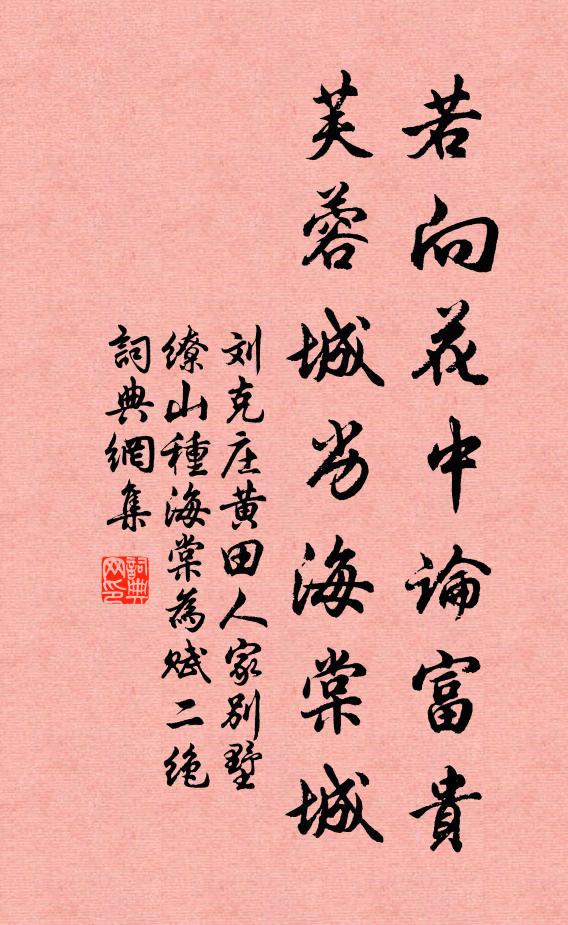 若向花中論富貴
芙蓉城劣海棠城
刘克庄黄田人家别墅
缭山種海棠為赋二绝
詞典網集
詞典
网印